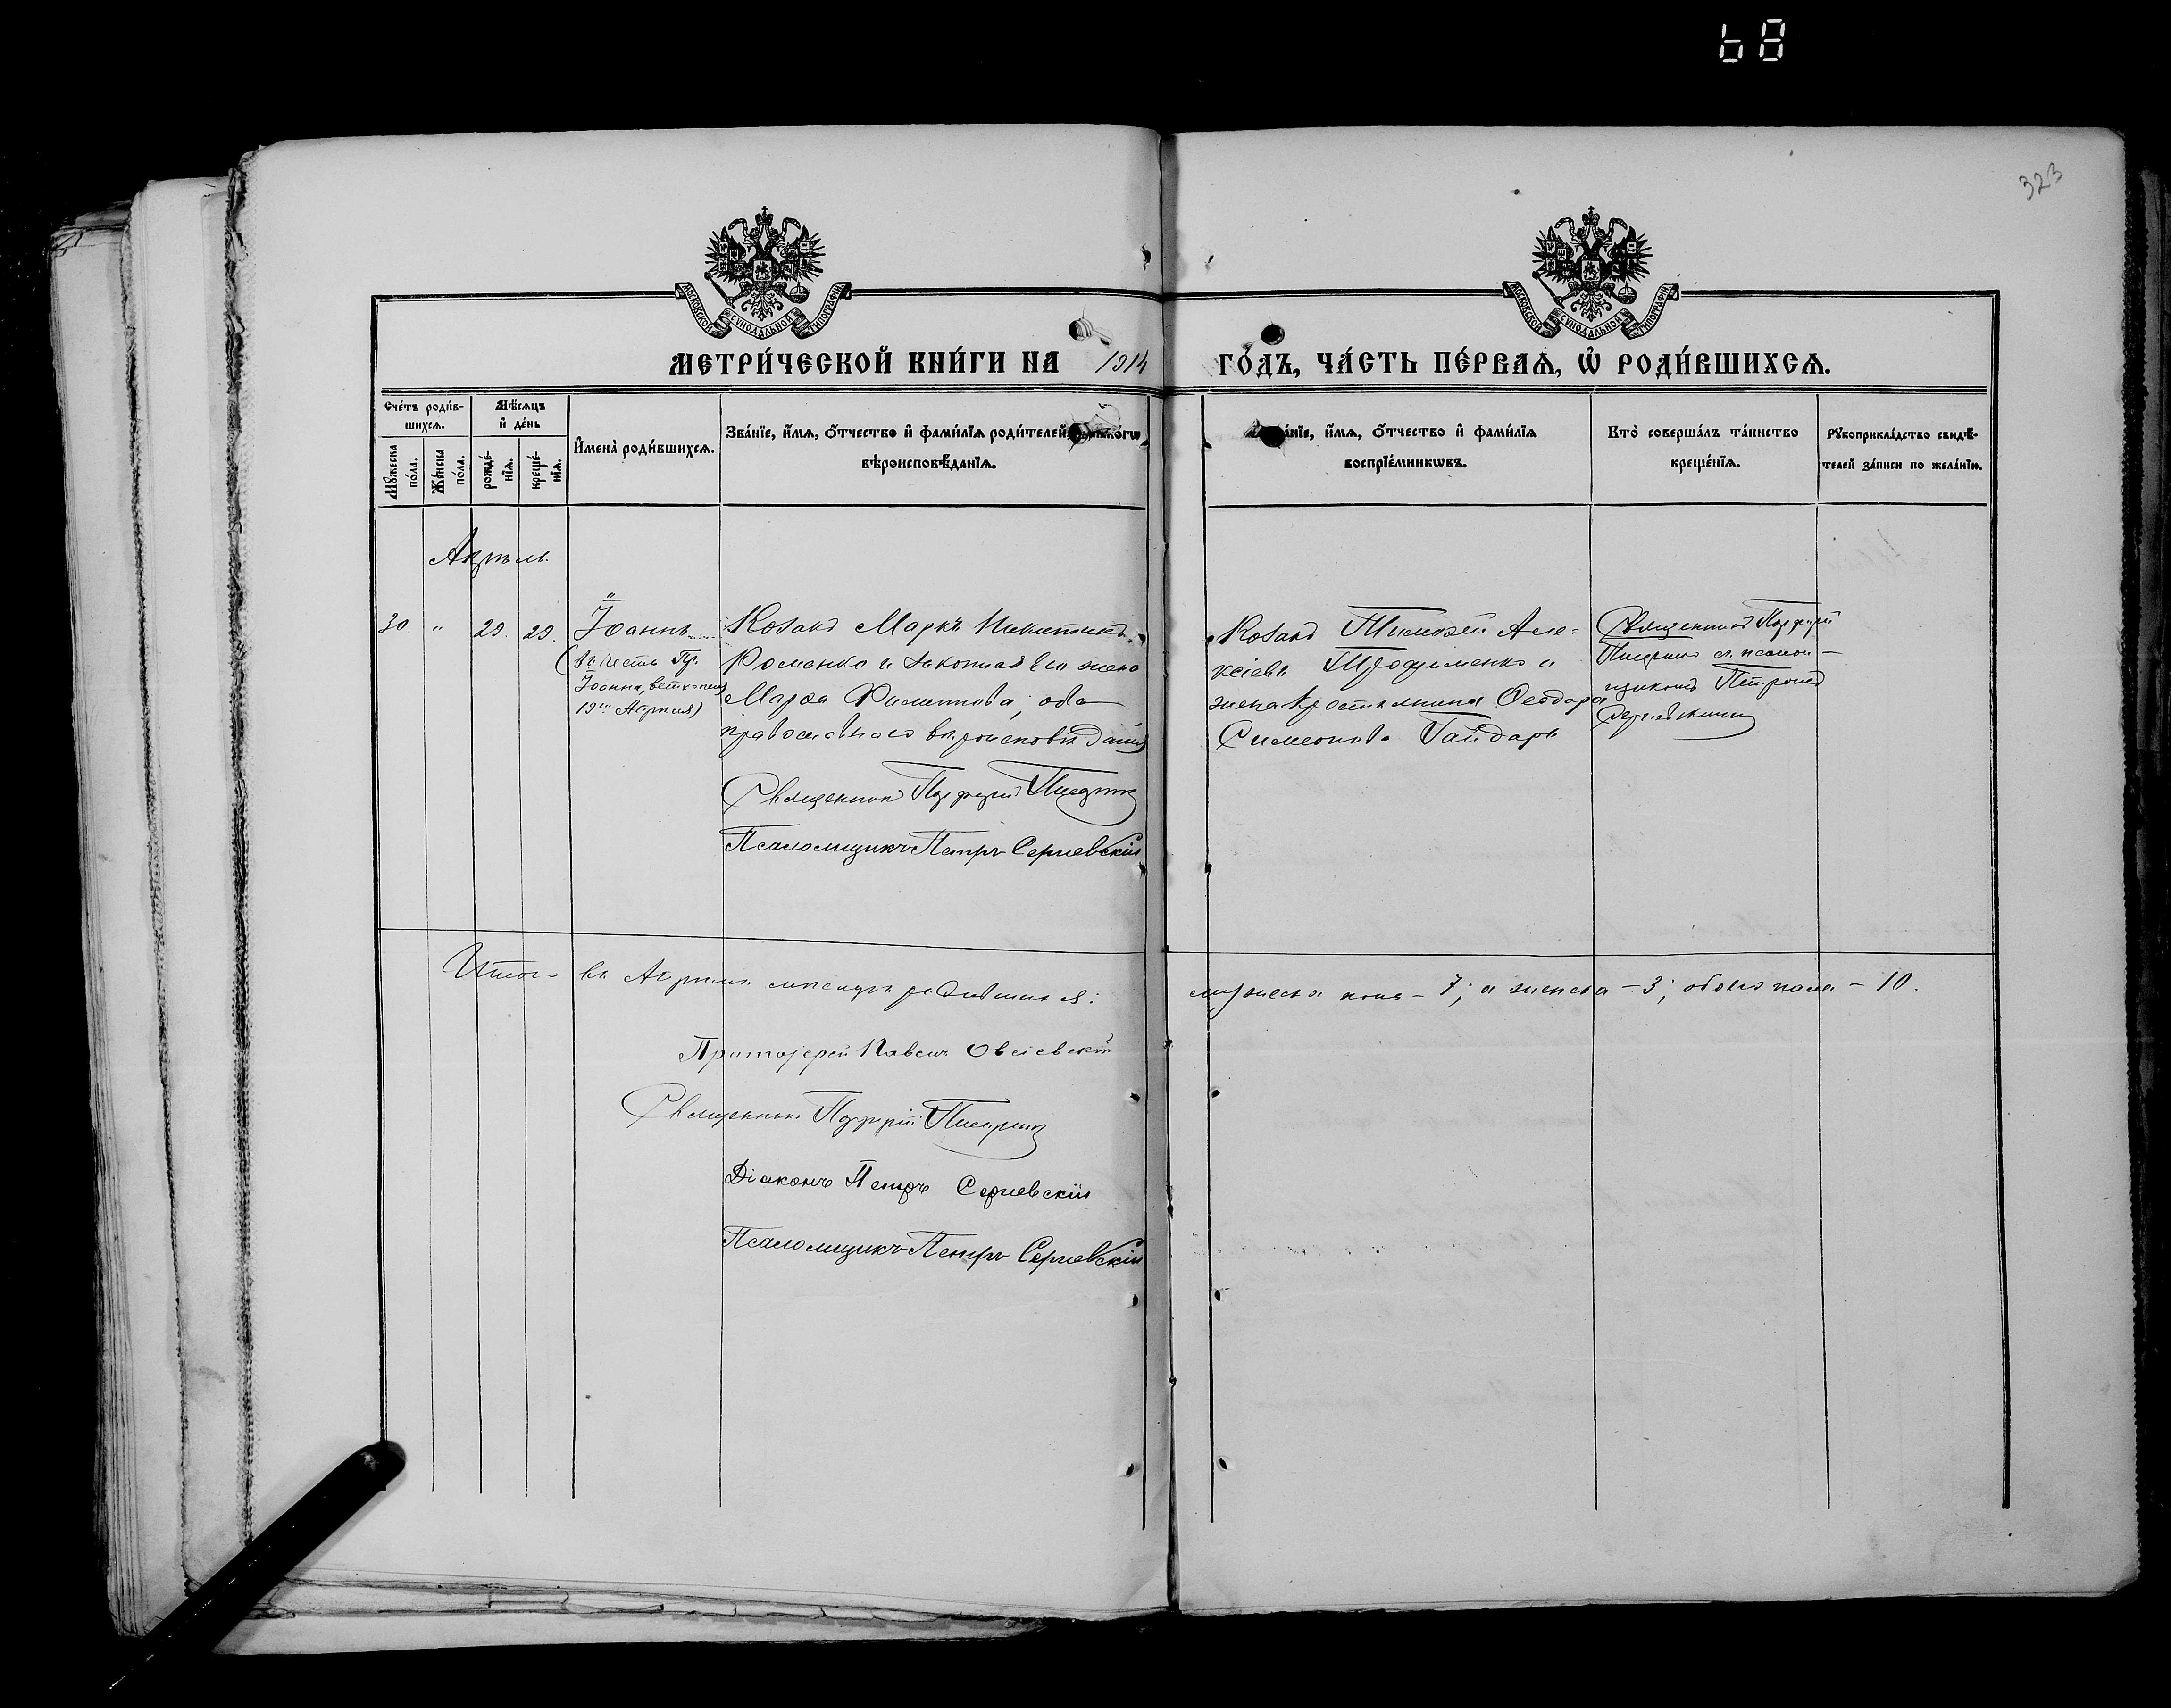 68
323
МОСКОВСКОЙ СѴНОДАЛЬНОЙ ТИПОГРАФІИ
МОСКОВСКОЙ СѴНОДАЛЬНОЙ ТИПОГРАФІИ
МЕТРИ́ЧЕСКОЙ КНИ́ГИ НА 1914 ГО́ДЪ, ЧА́СТЬ ПЕ́РВАѦ, Ѡ҆ РОДИ́ВШИХСѦ.
Сче́тъ роди́в-
шихсѧ.
Мꙋ́жеска по́ла.
Же́нска по́ла.
Мѣ́сѧцъ
и҆ де́нь
рожде́-
нїѧ.
креще́-
нїѧ.
И҆мена̀ роди́вшихсѧ.
Зва́нїе, и҆́мѧ, ѻ҆́тчество и҆ фами́лїѧ роди́телей,
вѣроисповѣ́данїѧ.
Зва́нїе, и҆́мѧ, ѻ҆́тчество и҆ фами́лїѧ
воспрїе́мникѡвъ.
Кто̀ соверша́лъ та́инство
креще́нїѧ.
Рꙋкоприкла́дство свидѣ́-
телей за́писи по жела́нїю.
Апрѣль.
30. " 29. 29.
Іоаннъ
(въ честь Пр.
Іоанна, ветхопещ.
19го Апрѣля)
Козакъ Маркъ Никитинъ
Романко и законная его жена
Марѳа Филиппова, оба
православнаго вѣроисповѣданія
Священникъ Порфирій
Псаломщикъ Петръ Сергіевскій
Козакъ Тимоѳей Але-
ксіевъ Трофименко и
жена крестьянина Ѳеодора
Симеонова Гайдаръ
Священникъ Порфирій
съ псалом-
щикомъ Петромъ
Сергіевскимъ
Итого въ Апрѣлѣ мѣсяцѣ родившихся: мужеска пола - 7; а женска - 3; обоего пола - 10.
Протоіерей Павелъ Овсіевскій
Священникъ Порфирій
Діаконъ Петръ Сергіевскій
Псаломщикъ Петръ Сергіевскій